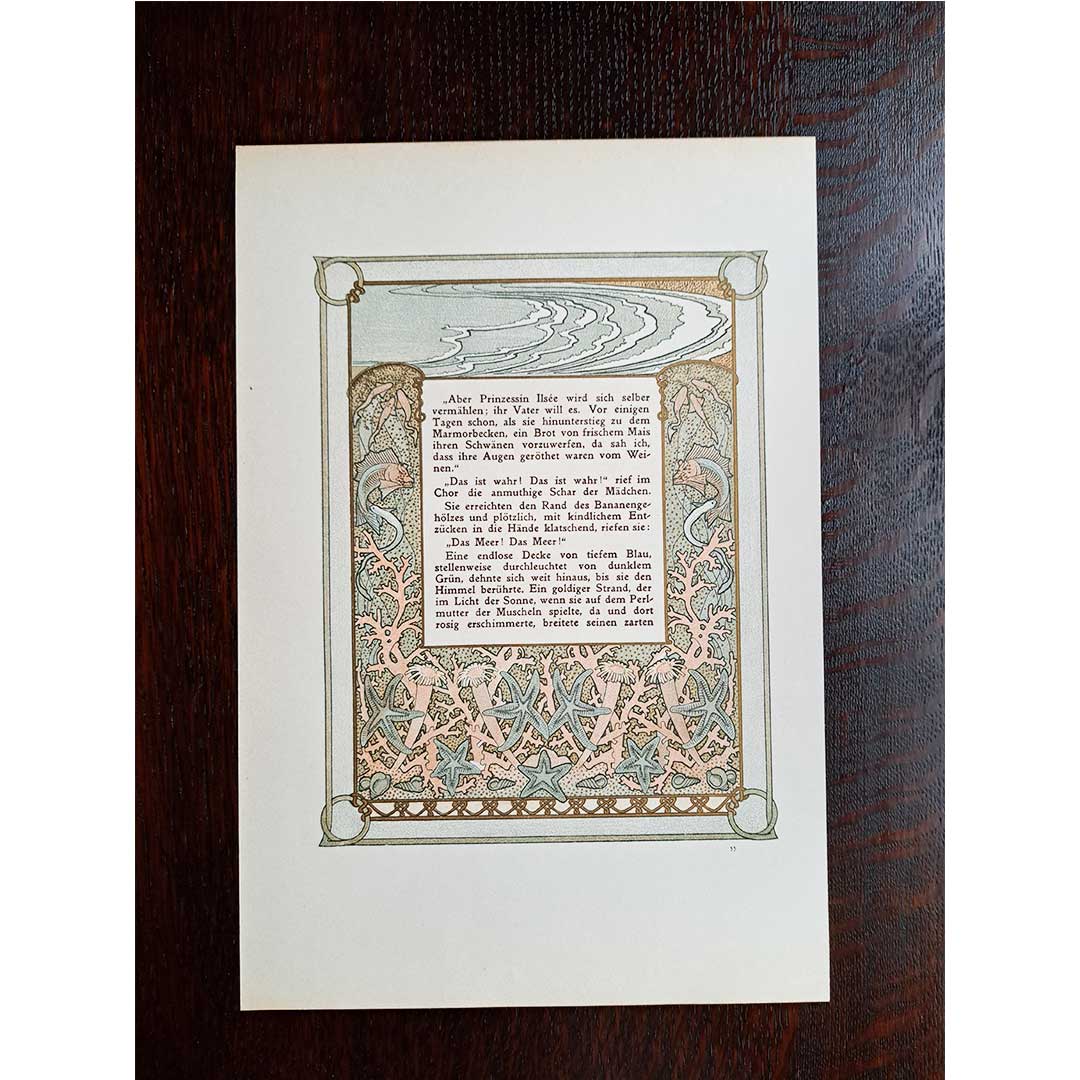 „Aber Prinzessin Ilsée wird sich selber
vermählen; ihr Vater will es. Vor einigen
Tagen schon, als sie hinunterstieg zu dem
Marmorbecken, ein Brot von frischem Mais
ihren Schwänen vorzuwerfen, da sah ich,
dass ihre Augen geröthet waren vom Wei-
nen.“
„Das ist wahr! Das ist wahr!“ rief im
Chor die anmuthige Schar der Mädchen.
Sie erreichten den Rand des Bananenge-
hölzes und plötzlich, mit kindlichem Ent-
zücken in die Hände klatschend, riefen sie:
„Das Meer! Das Meer!“
Eine endlose Decke von tiefem Blau,
stellenweise durchleuchtet von dunklem
Grün, dehnte sich weit hinaus, bis sie den
Himmel berührte. Ein goldiger Strand, der
im Licht der Sonne, wenn sie auf dem Perl-
mutter der Muscheln spielte, da und dort
rosig erschimmerte, breitete seinen zarten